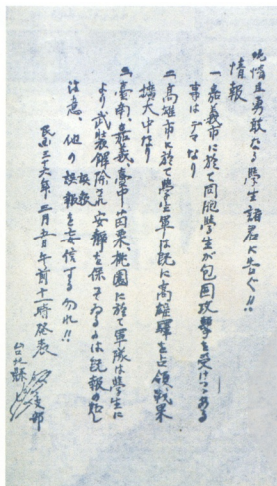 純情且勇敢なる學生諸君に告ぐ!!
情報
一、嘉義市に於て同胞學生が包囲攻擊を受けつゝある
事はデマなり
二、高雄市に於て學生軍は既に高雄驛を占領戰果
擴大中なり
三、臺南、嘉義、臺中、苗栗、桃園に於て軍隊は學生に
より武裝解除され安靜を保ちつゝあるは誤報の
注意 他の誤報を妄信する勿れ!!
誤報
民國三十六年三月五日午前十時発表
台北縣 支部